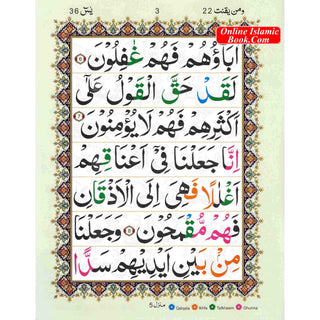 يٰسٓ 36
3
ومن يقنت 22
Online Islamic
Book.Com
اٰبَآؤُهُمْ فَهُمْ غٰفِلُوْنَ
لَقَدْ حَقَّ الْقَوْلُ عَلٰٓى
اَكْثَرِهِمْ فَهُمْ لَا يُؤْمِنُوْنَ
اِنَّا جَعَلْنَا فِيْٓ اَعْنَاقِهِمْ
اَغْلٰلًا فَهِىَ اِلَى الْاَذْقَانِ
فَهُمْ مُّقْمَحُوْنَ وَجَعَلْنَا
مِنْۢ بَيْنِ اَيْدِيْهِمْ سَدًّا
منزل 5
Qalqala Ikhfa Tafkheem Ghunna